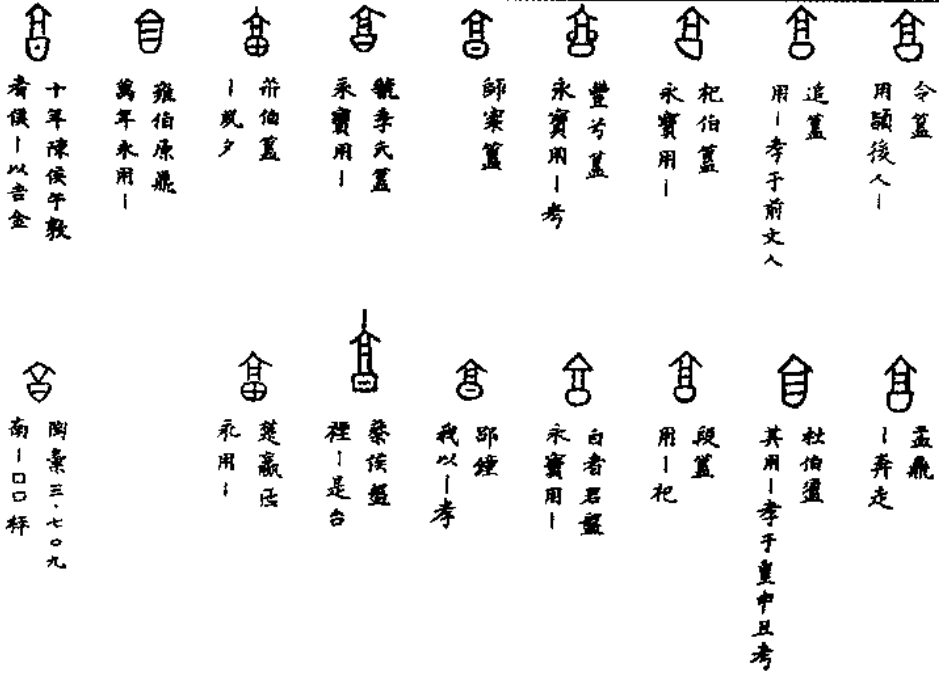 令簋
用後人丨
追簋
用丨孝于前文人
杞伯簋
永寶用丨
豐兮簋
永寶用丨考
師㝨簋
虢季氏簋
永寶用丨
伯簋
丨夙夕
雍伯原鼎
萬年永用丨
十年陳侯午敦
者侯丨以吉金
盂鼎
丨奔走
杜伯盨
其用丨孝于皇申且考
段簋
用丨祀
白者君盤
永寶用丨
郘鐘
我以丨孝
蔡侯盤
禋丨是台
楚嬴匜
永用丨
陶彙三·七〇九
南丨□□梓